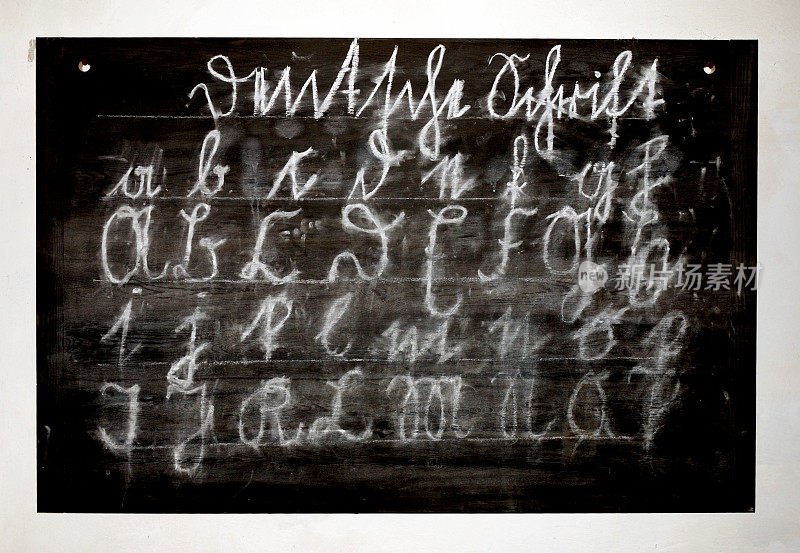 Deutsche Schrift
a b c d e f g h
A B C D E F G H
i j k l m n o p
I J K L M N O P
new 新片场素材